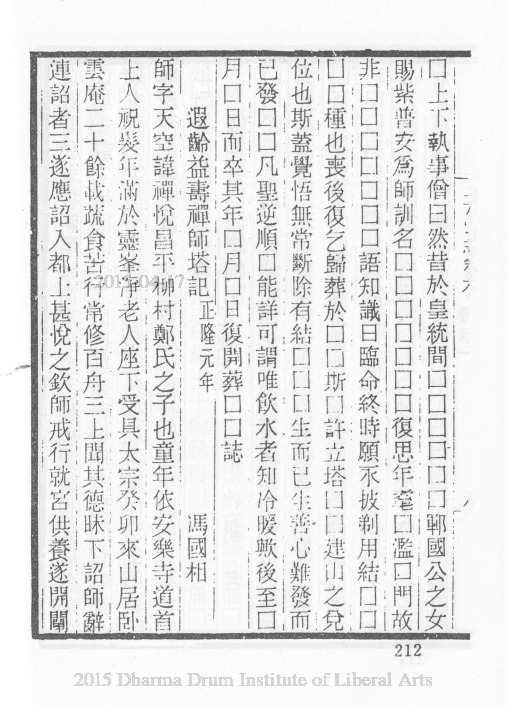 囗上下執事僧曰然昔於皇統間囗囗囗囗囗囗鄆國公之女
賜紫普安爲師訓名囗囗囗囗囗囗囗復思年耄囗濫囗門故
非囗囗囗囗囗囗囗語知識日臨命終時願永披剃用結囗囗
囗囗種也喪後復乞歸葬於囗囗斯囗許立塔囗囗建山之兒
位也斯蓋覺悟無常斷除有結囗囗囗生而已生善心難發而
已發囗囗凡聖逆順囗能詳可謂唯飲水者知冷暖歟後至囗
月囗日而卒其年囗月囗日復開葬囗囗誌
遐齡益壽禪師塔記 正隆元年 馮國相
師字天空諱禪悅昌平柳村鄭氏之子也童年依安樂寺道首
上人祝髮年滿於靈峯淨老人座下受具太宗癸卯來山居臥
雲庵二十餘載蔬食苦行常修百舟三上聞其德昧下詔師辭
連詔者三遂應詔入都上甚悅之欽師戒行就宮供養遂開闡
212
2015-04-17
2015 Dharma Drum Institute of Liberal Arts